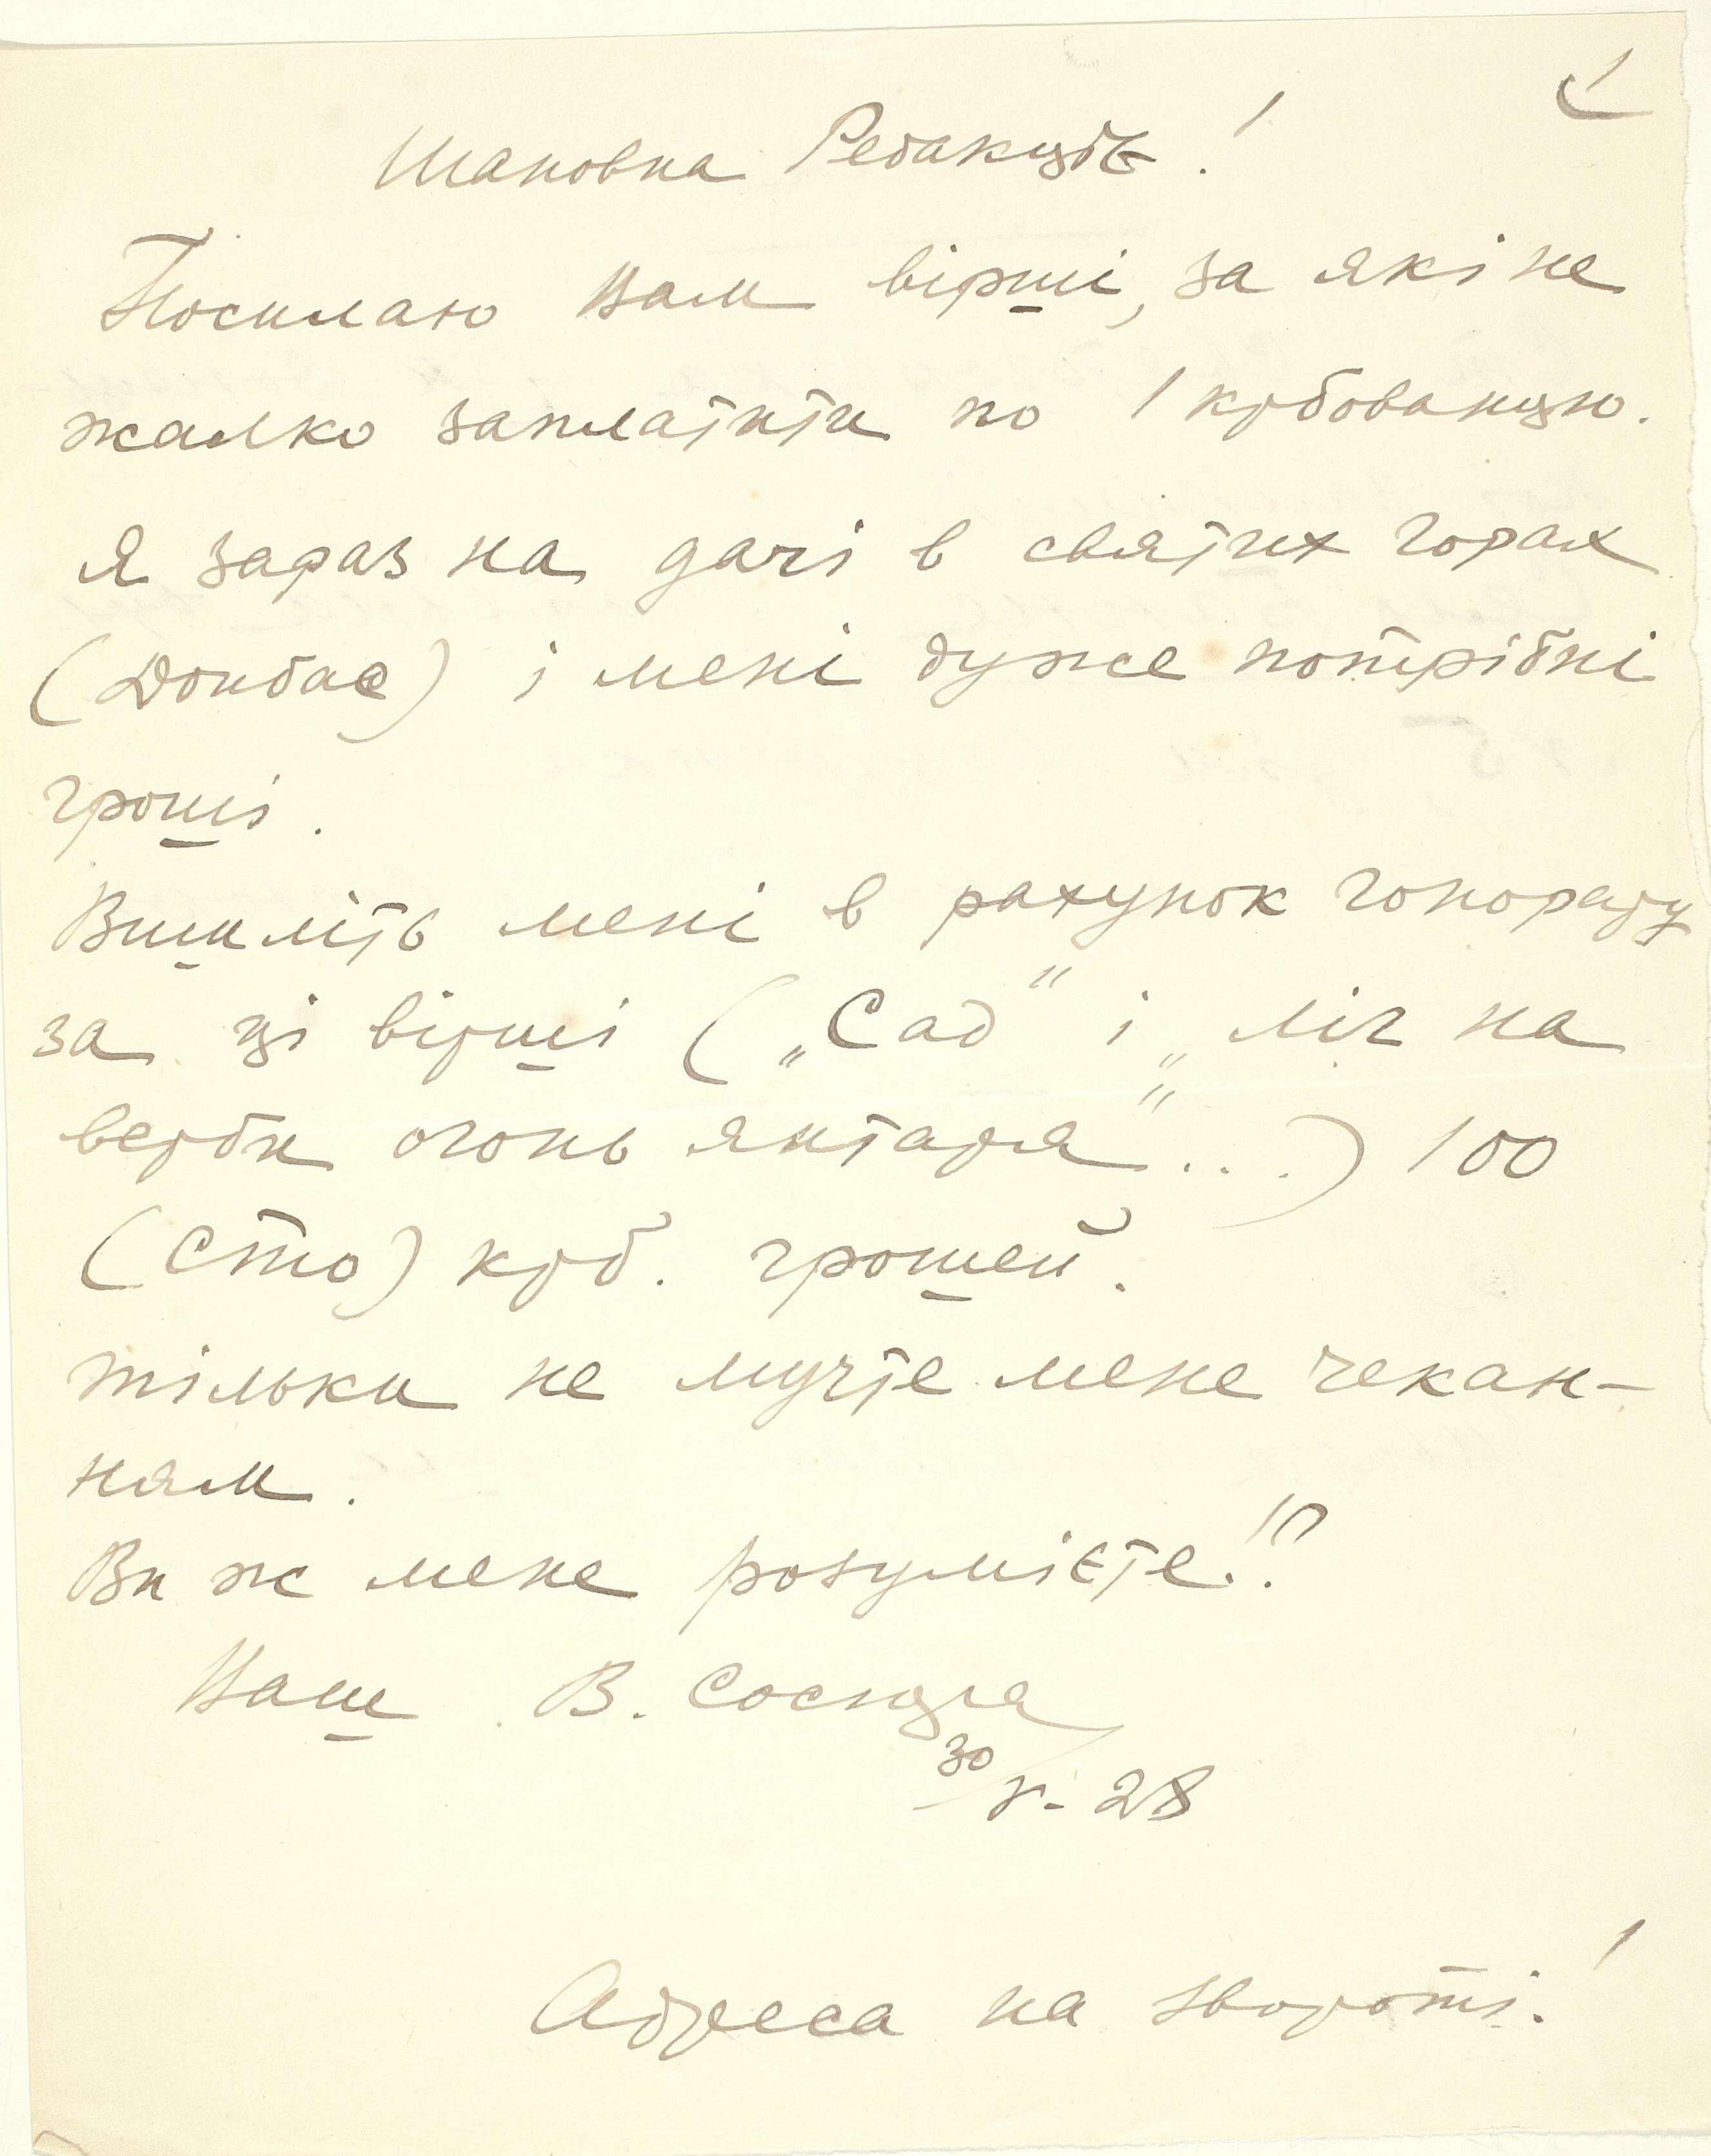 Шановна Редакціє!
Посилаю Вам вірші, за які не
жалко заплатити по 1 крбованцю.
Я зараз на дачі в святих горах
(Донбас) і мені дуже потрібні
гроші.
Вишліть мені в рахунок гонорару
за ці вірші („Сад" і „ліг на
верби огонь янтаря"...) 100
(сто) крб. грошей.
тільки не мучте мене чекан-
ням.
Ви ж мене розумієте!?
Ваш В. Сосюра
30/V-28
Адреса на звороті!